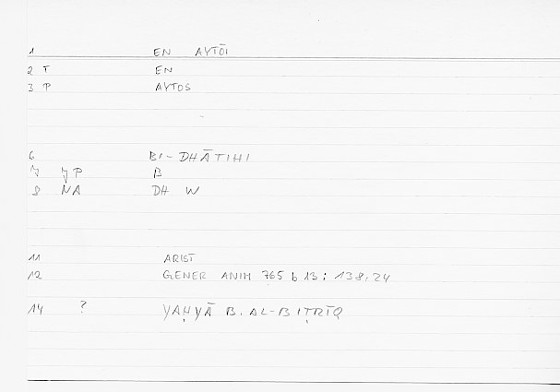 1 EN AVTŌI
2 T EN
3 P AVTOS
6 BI-DHĀTIHI
7 YP B
8 NA DH W
11 ARIST
12 GENER ANIM 765 b 13; 138,24
14 ? YAḤYĀ B. AL-BIṬRĪQ